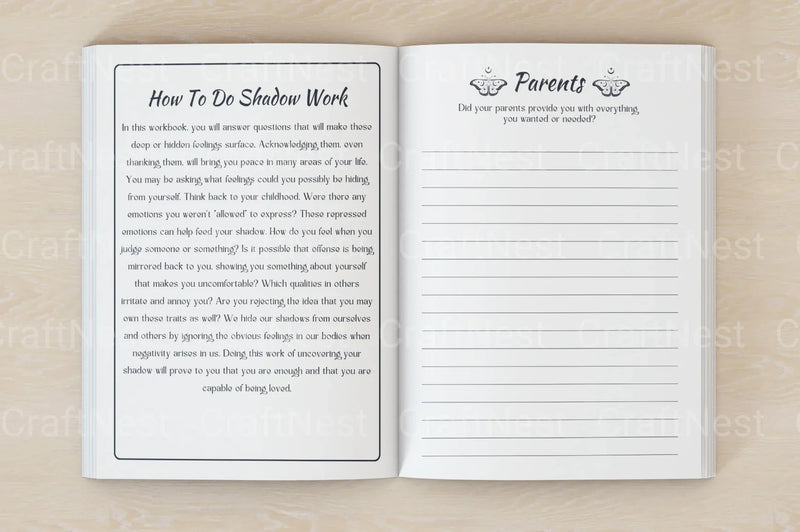 How To Do Shadow Work
In this workbook, you will answer questions that will make these
deep or hidden feelings surface. Acknowledging them, even
thanking them, will bring you peace in many areas of your life.
You may be asking what feelings could you possibly be hiding
from yourself. Think back to your childhood. Were there any
emotions you weren't "allowed" to express? These repressed
emotions can help feed your shadow. How do you feel when you
judge someone or something? Is it possible that offense is being
mirrored back to you, showing you something about yourself
that makes you uncomfortable? Which qualities in others
irritate and annoy you? Are you rejecting the idea that you may
own these traits as well? We hide our shadows from ourselves
and others by ignoring the obvious feelings in our bodies when
negativity arises in us. Doing this work of uncovering your
shadow will prove to you that you are enough and that you are
capable of being loved.
Parents
Did your parents provide you with everything
you wanted or needed?
CraftNest CraftNest CraftNest CraftNest
CraftNest CraftNest CraftNest CraftNest
CraftNest CraftNest CraftNest CraftNest
CraftNest CraftNest CraftNest CraftNest
CraftNest CraftNest CraftNest CraftNest